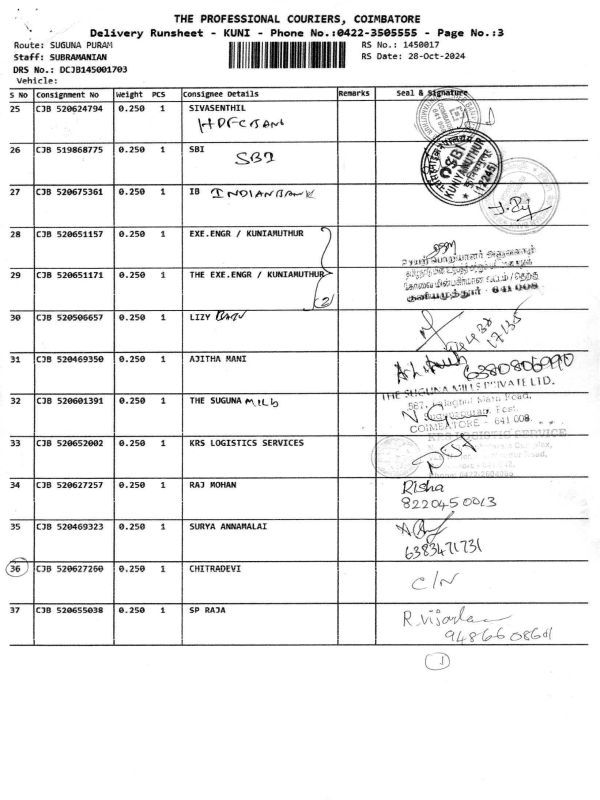 THE PROFESSIONAL COURIERS, COIMBATORE
Delivery Runsheet - KUNI - Phone No.:0422-3505555 - Page No.:3
Route: SUGUNA PURAM RS No.: 1450017
Staff: SUBRAMANIAN RS Date: 28-Oct-2024
DRS No.: DCJB145001703
Vehicle:
S No Consignment No Weight PCS Consignee Details Remarks Seal & Signature
25 CJB 520624794 0.250 1 SIVASENTHIL
HDFC BANK
26 CJB 519868775 0.250 1 SBI
SBI
SBI
KUNIYAMUTHUR
(12245)
27 CJB 520675361 0.250 1 IB INDIAN BANK
28 CJB 520651157 0.250 1 EXE.ENGR / KUNIAMUTHUR
29 CJB 520651171 0.250 1 THE EXE.ENGR / KUNIAMUTHUR
(2)
குனியமுத்தூர் - 641 008
30 CJB 520506657 0.250 1 LIZY
31 CJB 520469350 0.250 1 AJITHA MANI
6380806990
32 CJB 520601391 0.250 1 THE SUGUNA MILLS
THE SUGUNA MILLS PRIVATE LTD.
Sugunapuram Post,
COIMBATORE - 641 008
33 CJB 520652002 0.250 1 KRS LOGISTICS SERVICES
KRS LOGISTIC SERVICE
34 CJB 520627257 0.250 1 RAJ MOHAN Risha
8220450013
35 CJB 520469323 0.250 1 SURYA ANNAMALAI
6383471731
36 CJB 520627260 0.250 1 CHITRADEVI C/N
37 CJB 520655038 0.250 1 SP RAJA